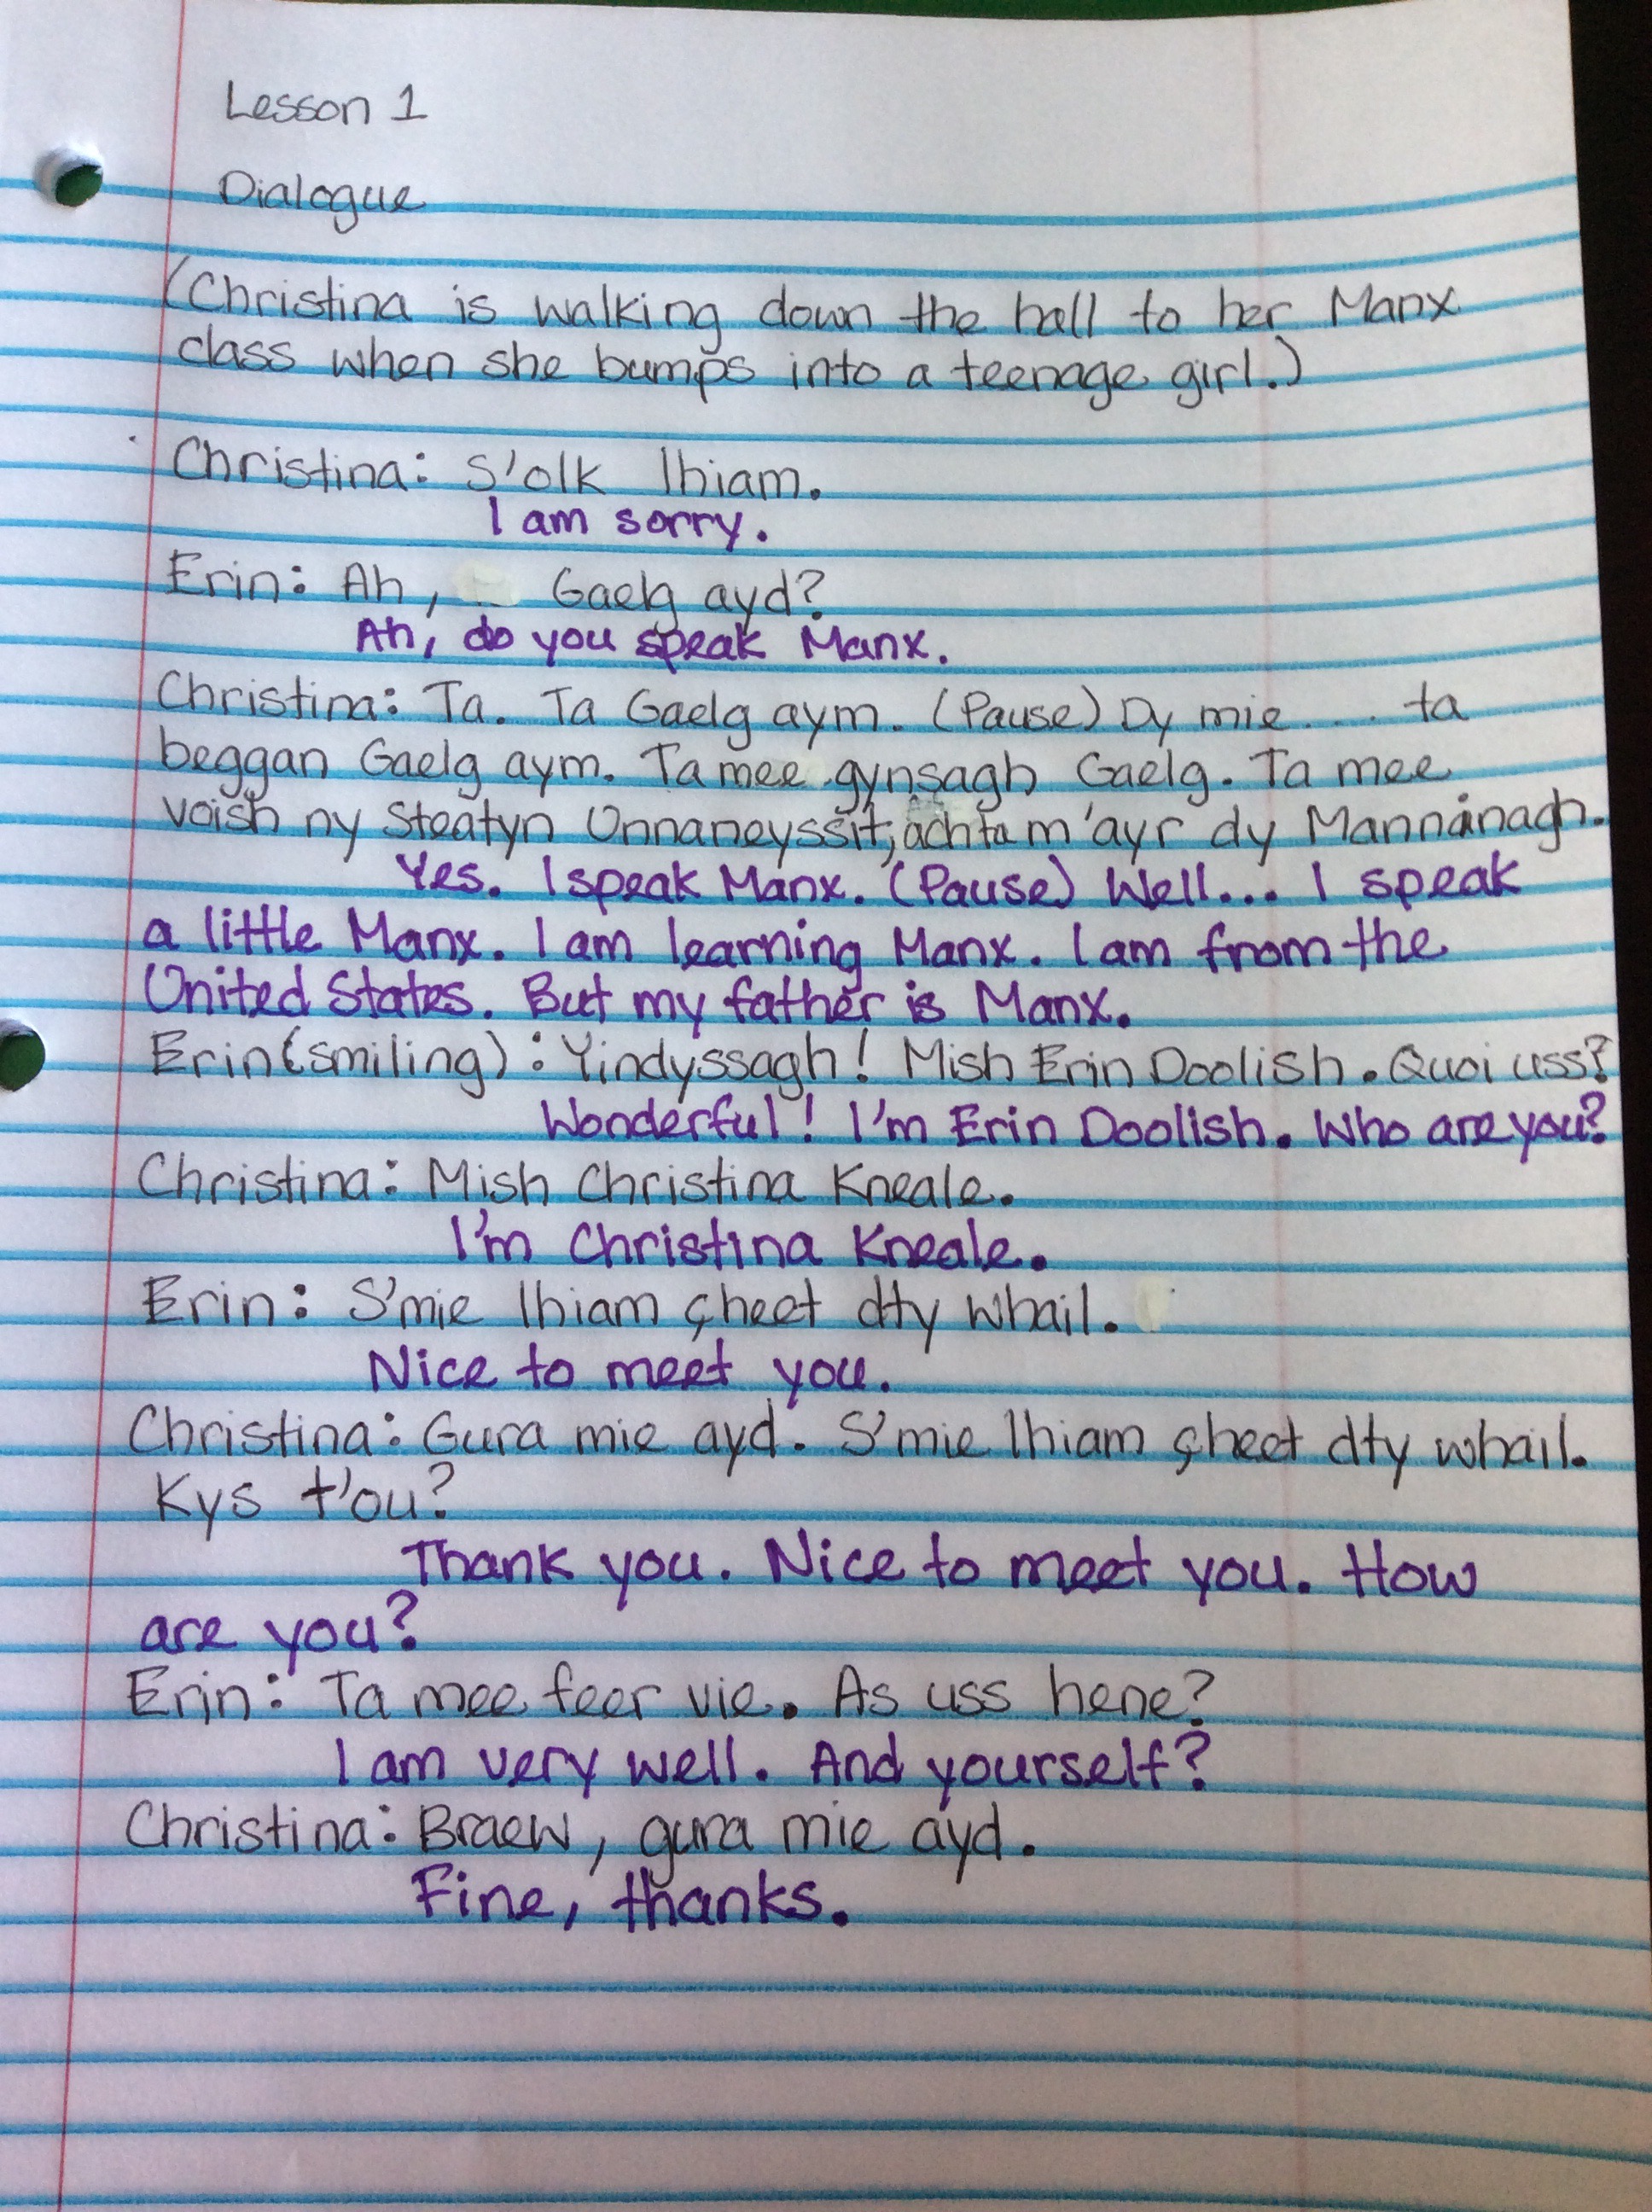 Lesson 1
Dialogue
(Christina is walking down the hall to her Manx
class when she bumps into a teenage girl.)
Christina: S'olk lhiam.
I am sorry.
Erin: Ah, Gaelg ayd?
Ah, do you speak Manx.
Christina: Ta. Ta Gaelg aym. (Pause) Dy mie.... ta
beggan Gaelg aym. Ta mee gynsagh Gaelg. Ta mee
voish ny Steatyn Unnaneyssit, ach ta m'ayr dy Mannánagh.
Yes. I speak Manx. (Pause) Well... I speak
a little Manx. I am learning Manx. I am from the
United States. But my father is Manx.
Erin (smiling): Yindyssagh! Mish Erin Doolish. Quoi uss?
Wonderful! I'm Erin Doolish. Who are you?
Christina: Mish Christina Kneale.
I'm Christina Kneale.
Erin: S'mie lhiam çheet dty whail.
Nice to meet you.
Christina: Gura mie ayd. S'mie lhiam çheet dty whail.
Kys t'ou?
Thank you. Nice to meet you. How
are you?
Erin: Ta mee feer vie. As uss hene?
I am very well. And yourself?
Christina: Braew, gura mie ayd.
Fine, thanks.